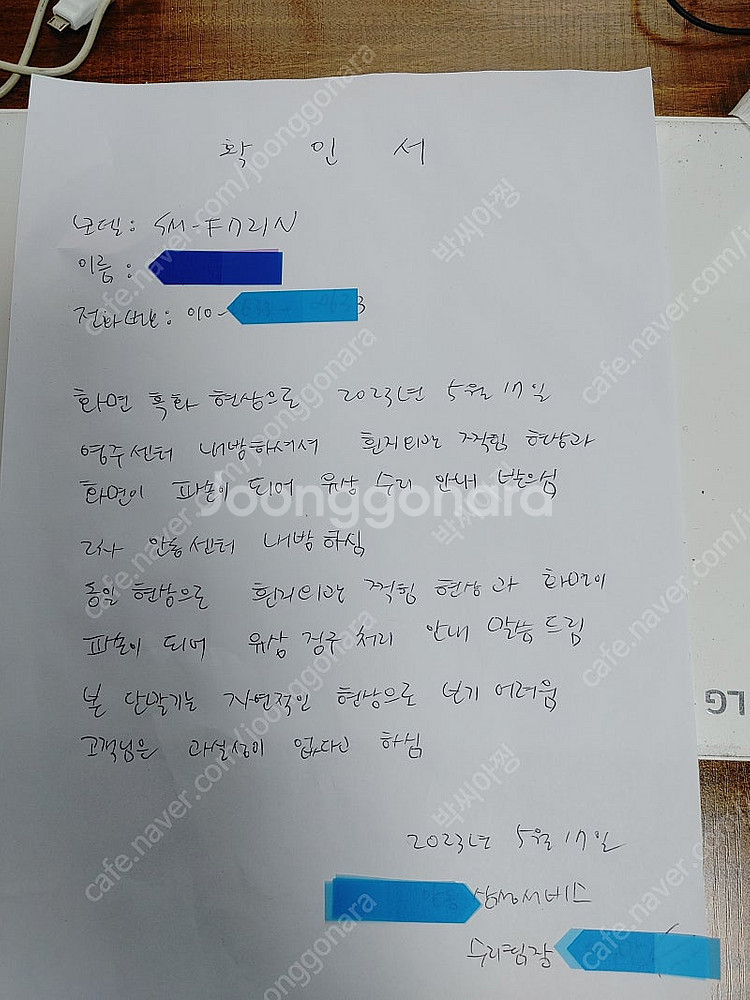 확 인 서
모델: SM-F721N
이름:
전화번호: 010-
화면 흑화 현상으로 2023년 5월 17일
영주센터 내방하셔서 흰지티관 찍힘 현상과
화면이 파손이 되어 유상 수리 안내 받으심
안동센터 내방하심
동일 현상으로 흰지티관 찍힘 현상과 화면이
파손이 되어 유상 청구 처리 안내 말씀드림
본 단말기는 자연적인 현상으로 보기 어려움
고객님은 과실성이 없다고 하심
2023년 5월 17일
삼성서비스
수리팀장
Joonggonara
cafe.naver.com/joonggonara
박씨아찡
LG